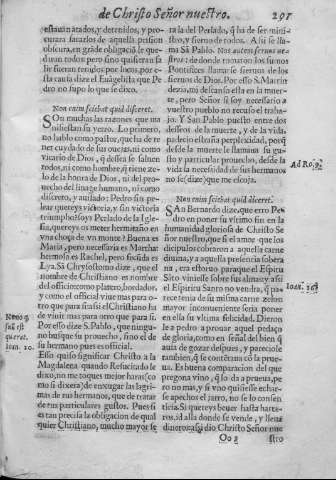 de Christo Señor nuestro. 291
estauan atados, y detenidos, y pro-
curara sacarlos de aquella prision
obscura, en gràde obligaciõ le que-
daran todos pero sino quisieran sa-
lir fueran forçados de locos, por es-
sta causa dize el Euãgelista que Pe-
dro no supo lo que se dixo.
Non enim sciebat quid diceret.
SOn muchas las razones que ma
nifiestan su yerro. Lo primero,
no hablo como pastor, que ha de te-
ner cuydado de sus ouejas, ni como
vicario de Dios, q̃ dessea se saluen
todos, ni como hombre, q̃ tiene ze-
lo de la honra de Dios, ni del pro-
uecho del linage humano, ni como
discreto, y auisado: Pedro sin pe-
lear quereys victoria, y sin victoria
triumpho? soys Perlado de la Igle-
sia, quereys os meter hermitaño en
vna choça de vn monte? Buena es
Maria, pero necessaria es Martha:
hermosa es Rachel, pero fecunda es
Lya. Sã Chrysostomo dize, que el
nombre de Christiano es nombre
del officio: como platero, bordador,
y como el official viue mas para o-
tro que para si: assi el Christiano ha
de viuir mas para otro que para si.
Por esso dize S. Pablo, que ningu-
no busque su prouecho, sino el de
su hermano, como el official.
Esso quiso significar Christo a la
Magdalena quando Resucitado le
dixo, no me toques mejor haras (co
mo si dixera) de enxugar las lagri-
mas de tus hermanos, que de tratar
de tus particulares gustos. Pues si
es tan precisa la obligacion de qual
quier Christiano, mucho mayor se
Nemo q̃
suũ est
querat.
Ioan. 20.
ra la del Perlado, q̃ ha de ser minis-
tro, y sieruo de todos. A si se lla-
ma Sã Pablo. Nos autem seruos ve-
stros: de donde tomaron los sumos
Pontifices llamarse sieruos de los
sieruos de Dios. Por esso S. Martin
dezia, mi descanso esta en la muer-
te, pero Señor si soy necessario a
vuestro pueblo no recuso el traba-
jo. Y San Pablo puesto entre dos
desseos de la muerte, y de la vida,
padecio estraña perplexidad, porq̃
desde la muerte le llamaua su gu-
sto y particular prouecho, desde la
vida la necessidad de sus hermanos
no se (dize) que me escoja.
Ad Ro. 9.
Non enim sciebat quid diceret.
SAn Bernardo dize, que erro Pe-
dro en poner su vltimo fin en la
humanidad gloriosa de Christo Se
ñor nuestro, que si el amor que los
dicipulos cobraron a aquella carne
diuina, y a aquella presencia sobera
na, era estoruo para que el Espiritu
Sãto viniesse sobre sus almas, y assi
el Espiritu Santo no vendra, q̃ pa-
recetenia de su misma carne zelos
mayor inconueniente seria poner
en ella su vltima felicidad. Dieron
le a pedro a prouar aquel pedaço
de gloria, como en señal del bien q̃
auia de gozar despues, y pareciole
tambien, q̃ se contentara cõ la prue-
ua. Es buena comparacion del que
pregona vino, q̃ lo da a prueua, pe-
ro no mas, y si vno quisiesse echar-
se a pechos el jarro, no se lo consen-
tiria. Si quereys beuer hasta harta-
ros. id alla donde se vende, y lleuad
dineros, a si dio Christo Señor nue
Ioan. 16
Oo 3
stro